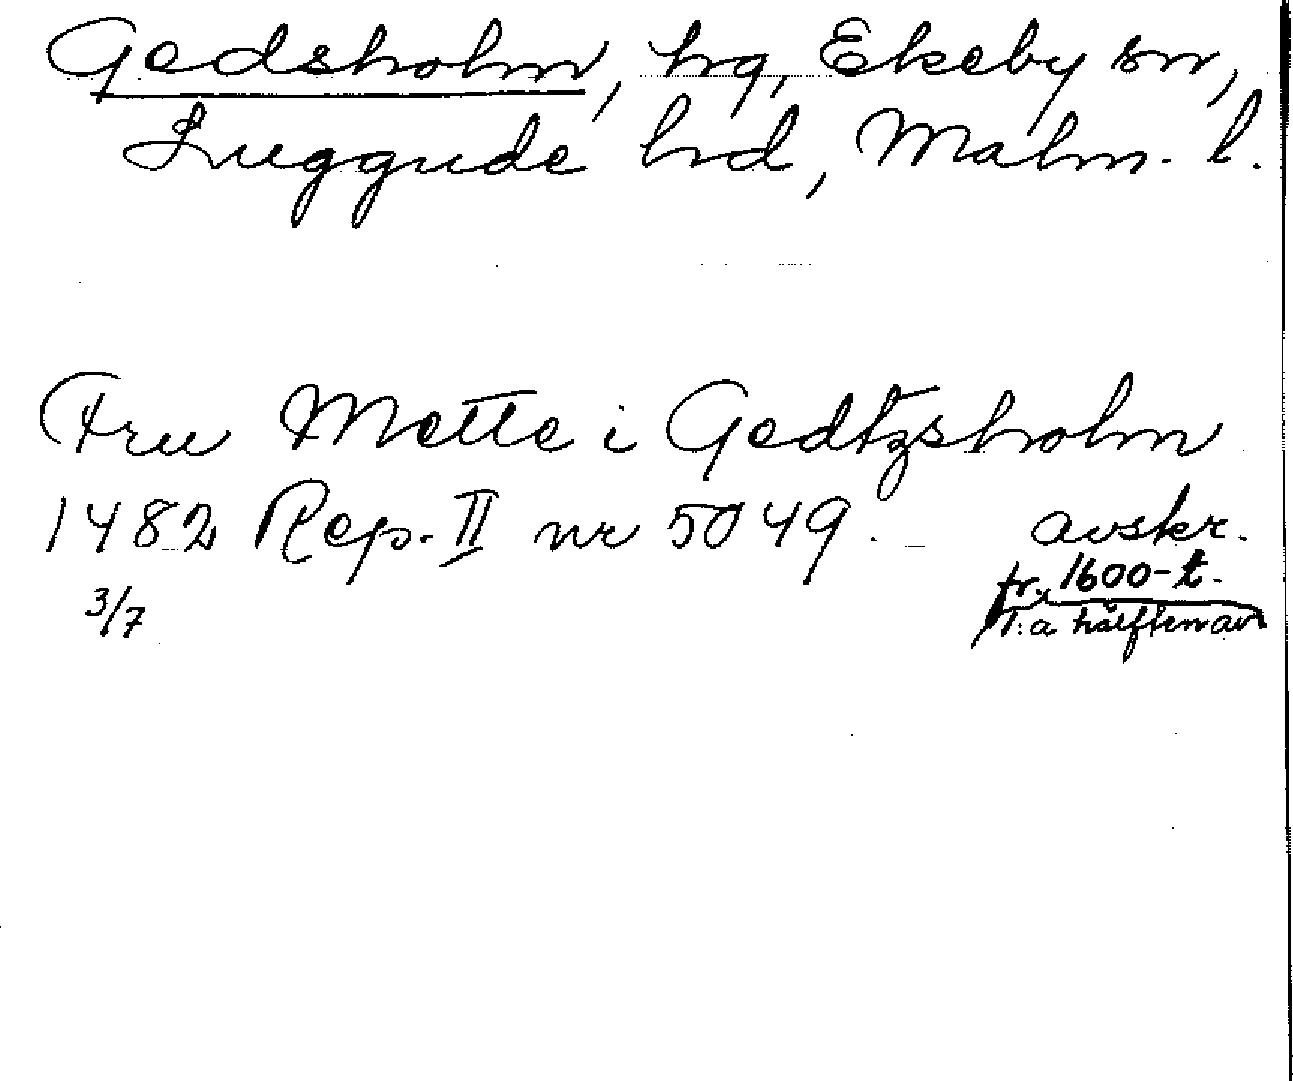 Gedsholm, hg, Ekeby sn,
Luggude hrd, Malm. l.
Fru Mette i Gedtzsholm
1482 Rep. II nr 5049. avskr.
3/7 fr. 1600-t.
1:a hälften av